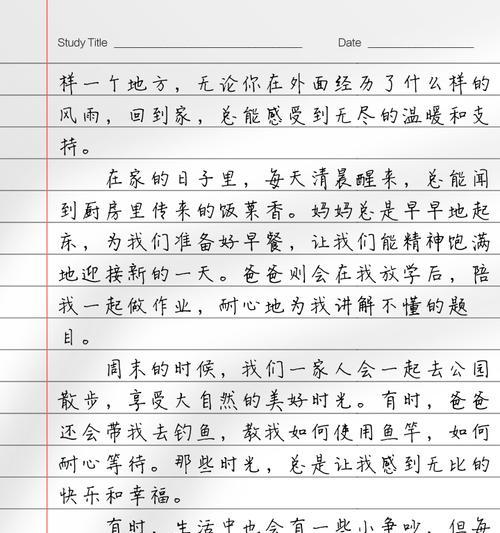 Study Title
Date
样一个地方，无论你在外面经历了什么样的
风雨，回到家，总能感受到无尽的温暖和支
持。
在家的日子里，每天清晨醒来，总能闻
到厨房里传来的饭菜香。妈妈总是早早地起
床，为我们准备好早餐，让我们能精神饱满
地迎接新的一天。爸爸则会在我放学后，陪
我一起做作业，耐心地为我讲解不懂的题
目。
周末的时候，我们一家人会一起去公园
散步，享受大自然的美好时光。有时，爸爸
还会带我去钓鱼，教我如何使用鱼竿，如何
耐心等待。那些时光，总是让我感到无比的
快乐和幸福。
有时，生活中也会有一些小争吵，但每